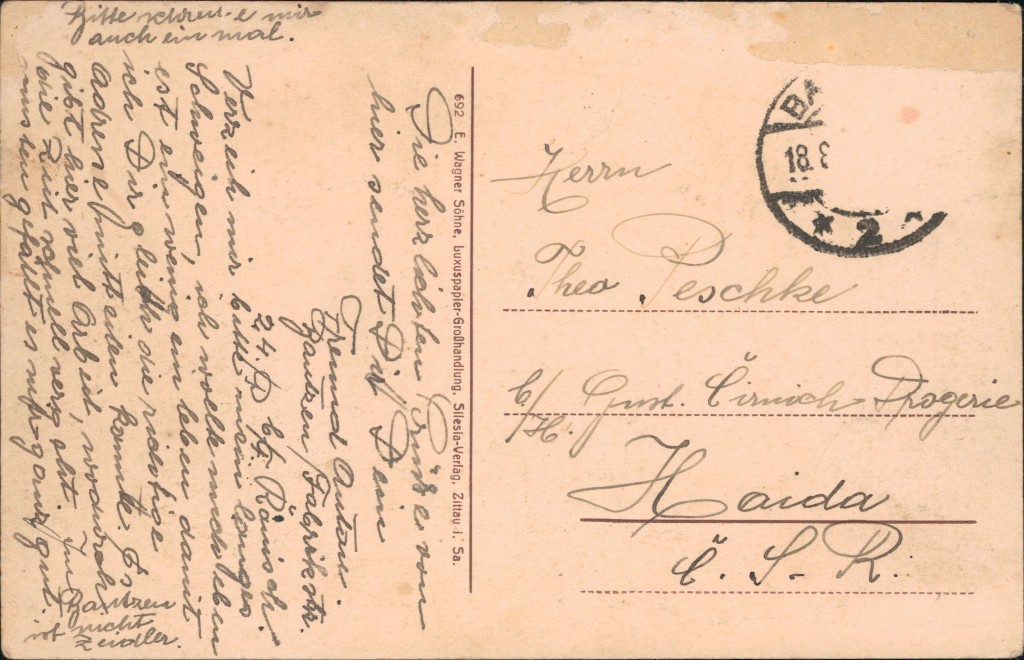 Bitte schreibe mir
auch ein mal.
Die herzlichsten Grüße von
hier sendet Dir Dein
Freund Anton.
Bautzen, Fabrikstr.
24. b/ Rönisch.
Verzeih mir bitte mein langes
Schweigen, ich wollte mich eben
erst ein wenig ein leben damit
ich Dir gleich die richtige
Adresse mitteilen konnte. Es
gibt hier viel Arbeit, wodurch
die Zeit schnell vergeht. Im
gefällt es mir ganz gut.
Bautzen
ist nicht
Zeidler.
692 E. Wagner Söhne, Luxuspapier-Großhandlung, Silesia-Verlag, Zittau i. Sa.
BA
18.8
* 2
Herrn
Theo Peschke
b/ Gust. Drogerie
H.
Haida
Č. S. R.